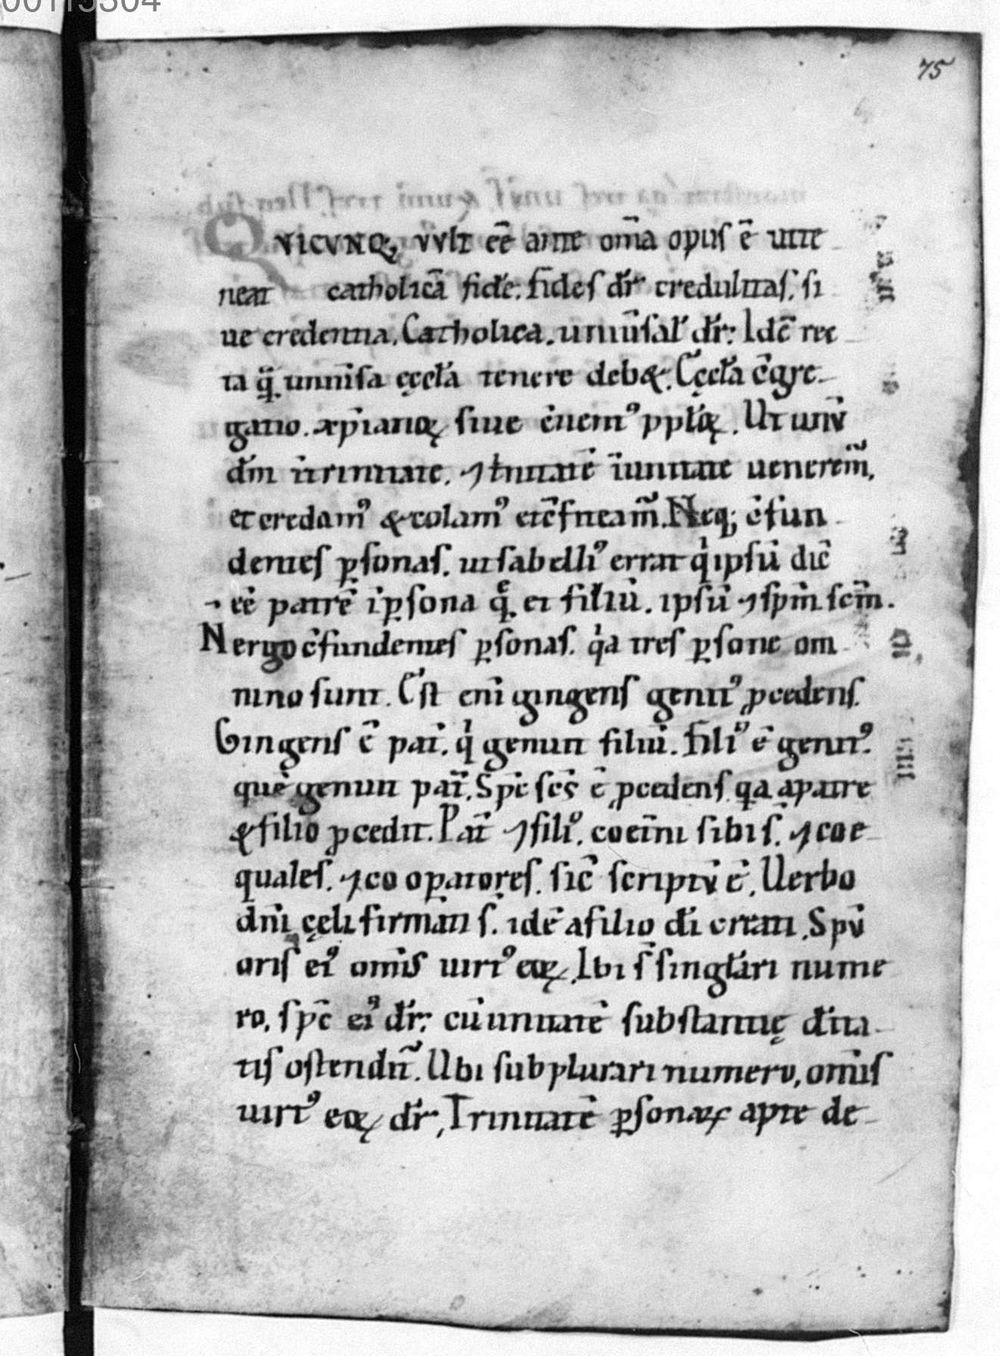 00115304
75
QVICVNQ, vvlt eē ante om̄a opus ē ut te
neat catholicā fidē. fides dr̄ credulitas, si
ue credentia. Catholica. uniu͞sal' dr̄. Idē rec
ta q̄ uniu͞sa ęccl'a tenere deb&. Ęccl'a c̄gre
gatio. xp̄ianoꝝ siue c̄uent᾽ ppl'oꝝ. Ut unū
dm̄ ī trinitate. ⁊ t̄nitatē ī unitate ueneremur̄,
et credam᾽ & colam᾽ Neq; c̄fun
dentes p̱sonas. ut sabelli᾽ errat q̇ ipsū dic̄
eē patrē ī p̱sona q̄. et filiū. ipsū ⁊ sp̄m sc̄m.
N ergo c̄fundentes p̱sonas. q̇a tres p̱sone om
nino sunt. Est eni gingens genit᾽ p̱cedens.
Gingens ē pat̄. q̇ genuit filiū. Fili᾽ ē genit᾽.
quē genuit pat̄. Sp̄c sc̄s ē p̱cedens. qa a patre
& filio p̱cedit. Pat̄ ⁊ fili᾽. coet̄ni sibi s̄. ⁊ coe
quales. ⁊ co op̱atores. sic̄ scriptū ē. Uerbo
dn̄i cęli firmati s̄. idē a filio di creati. Spū
oris ei᾽ om̄is uirt᾽ eoꝝ. Ibi s̄ singl'ari nume
ro. sp̄c ei᾽ dr̄. cū unitatē substantię diuita
tis ostendit̄. Ubi sub plurari numero, om̄is
uirt᾽ eoꝝ dr̄, Trinitatē p̱sonaꝝ apte de